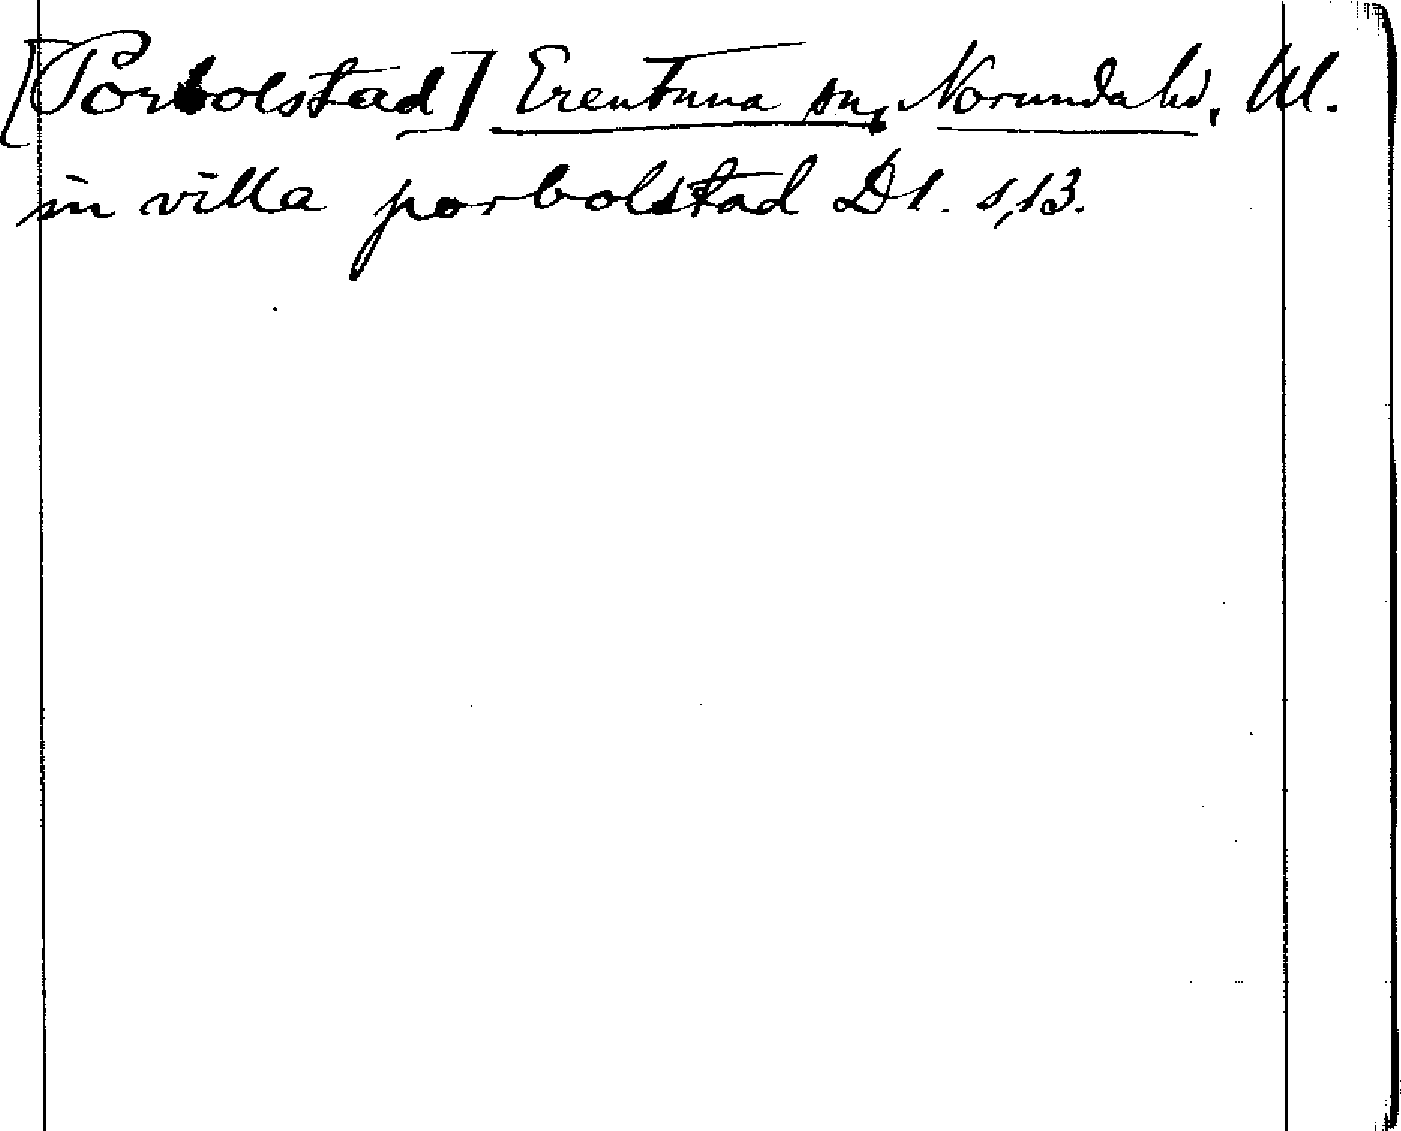 [Porbolstad] Erentuna sn, Norunda hd, Ul.
in villa porbolstad D1. s,13.